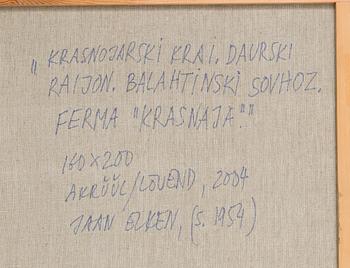 „KRASNOJARSKI KRAI. DAURSKI
RAIJON. BALAHTINSKI SOVHOZ.
FERMA "KRASNAJA"."
160×200
AKRÜÜL/LÕUEND, 2004
JAAN ELKEN, (S. 1954)